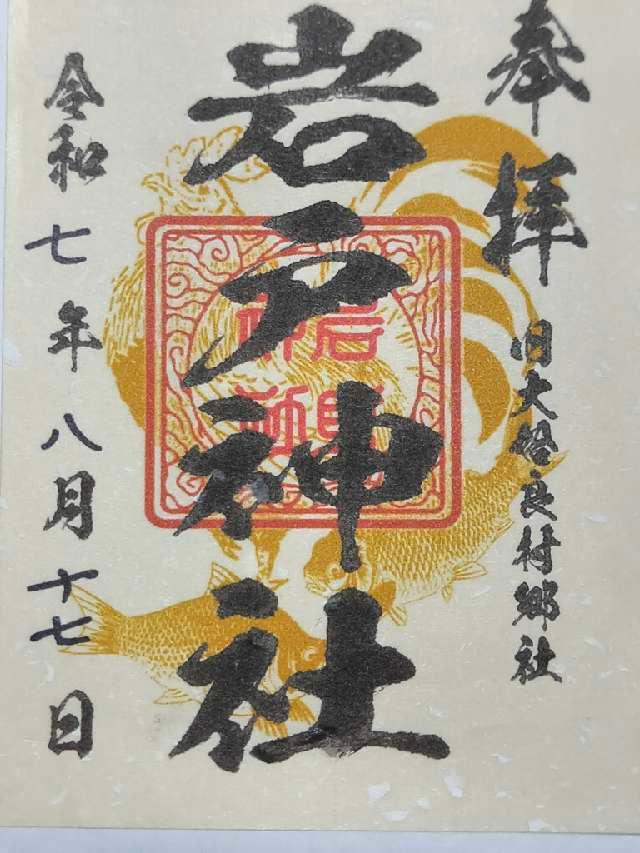 奉拝
旧大姶良村郷社
岩戸神社
令和七年八月十七日